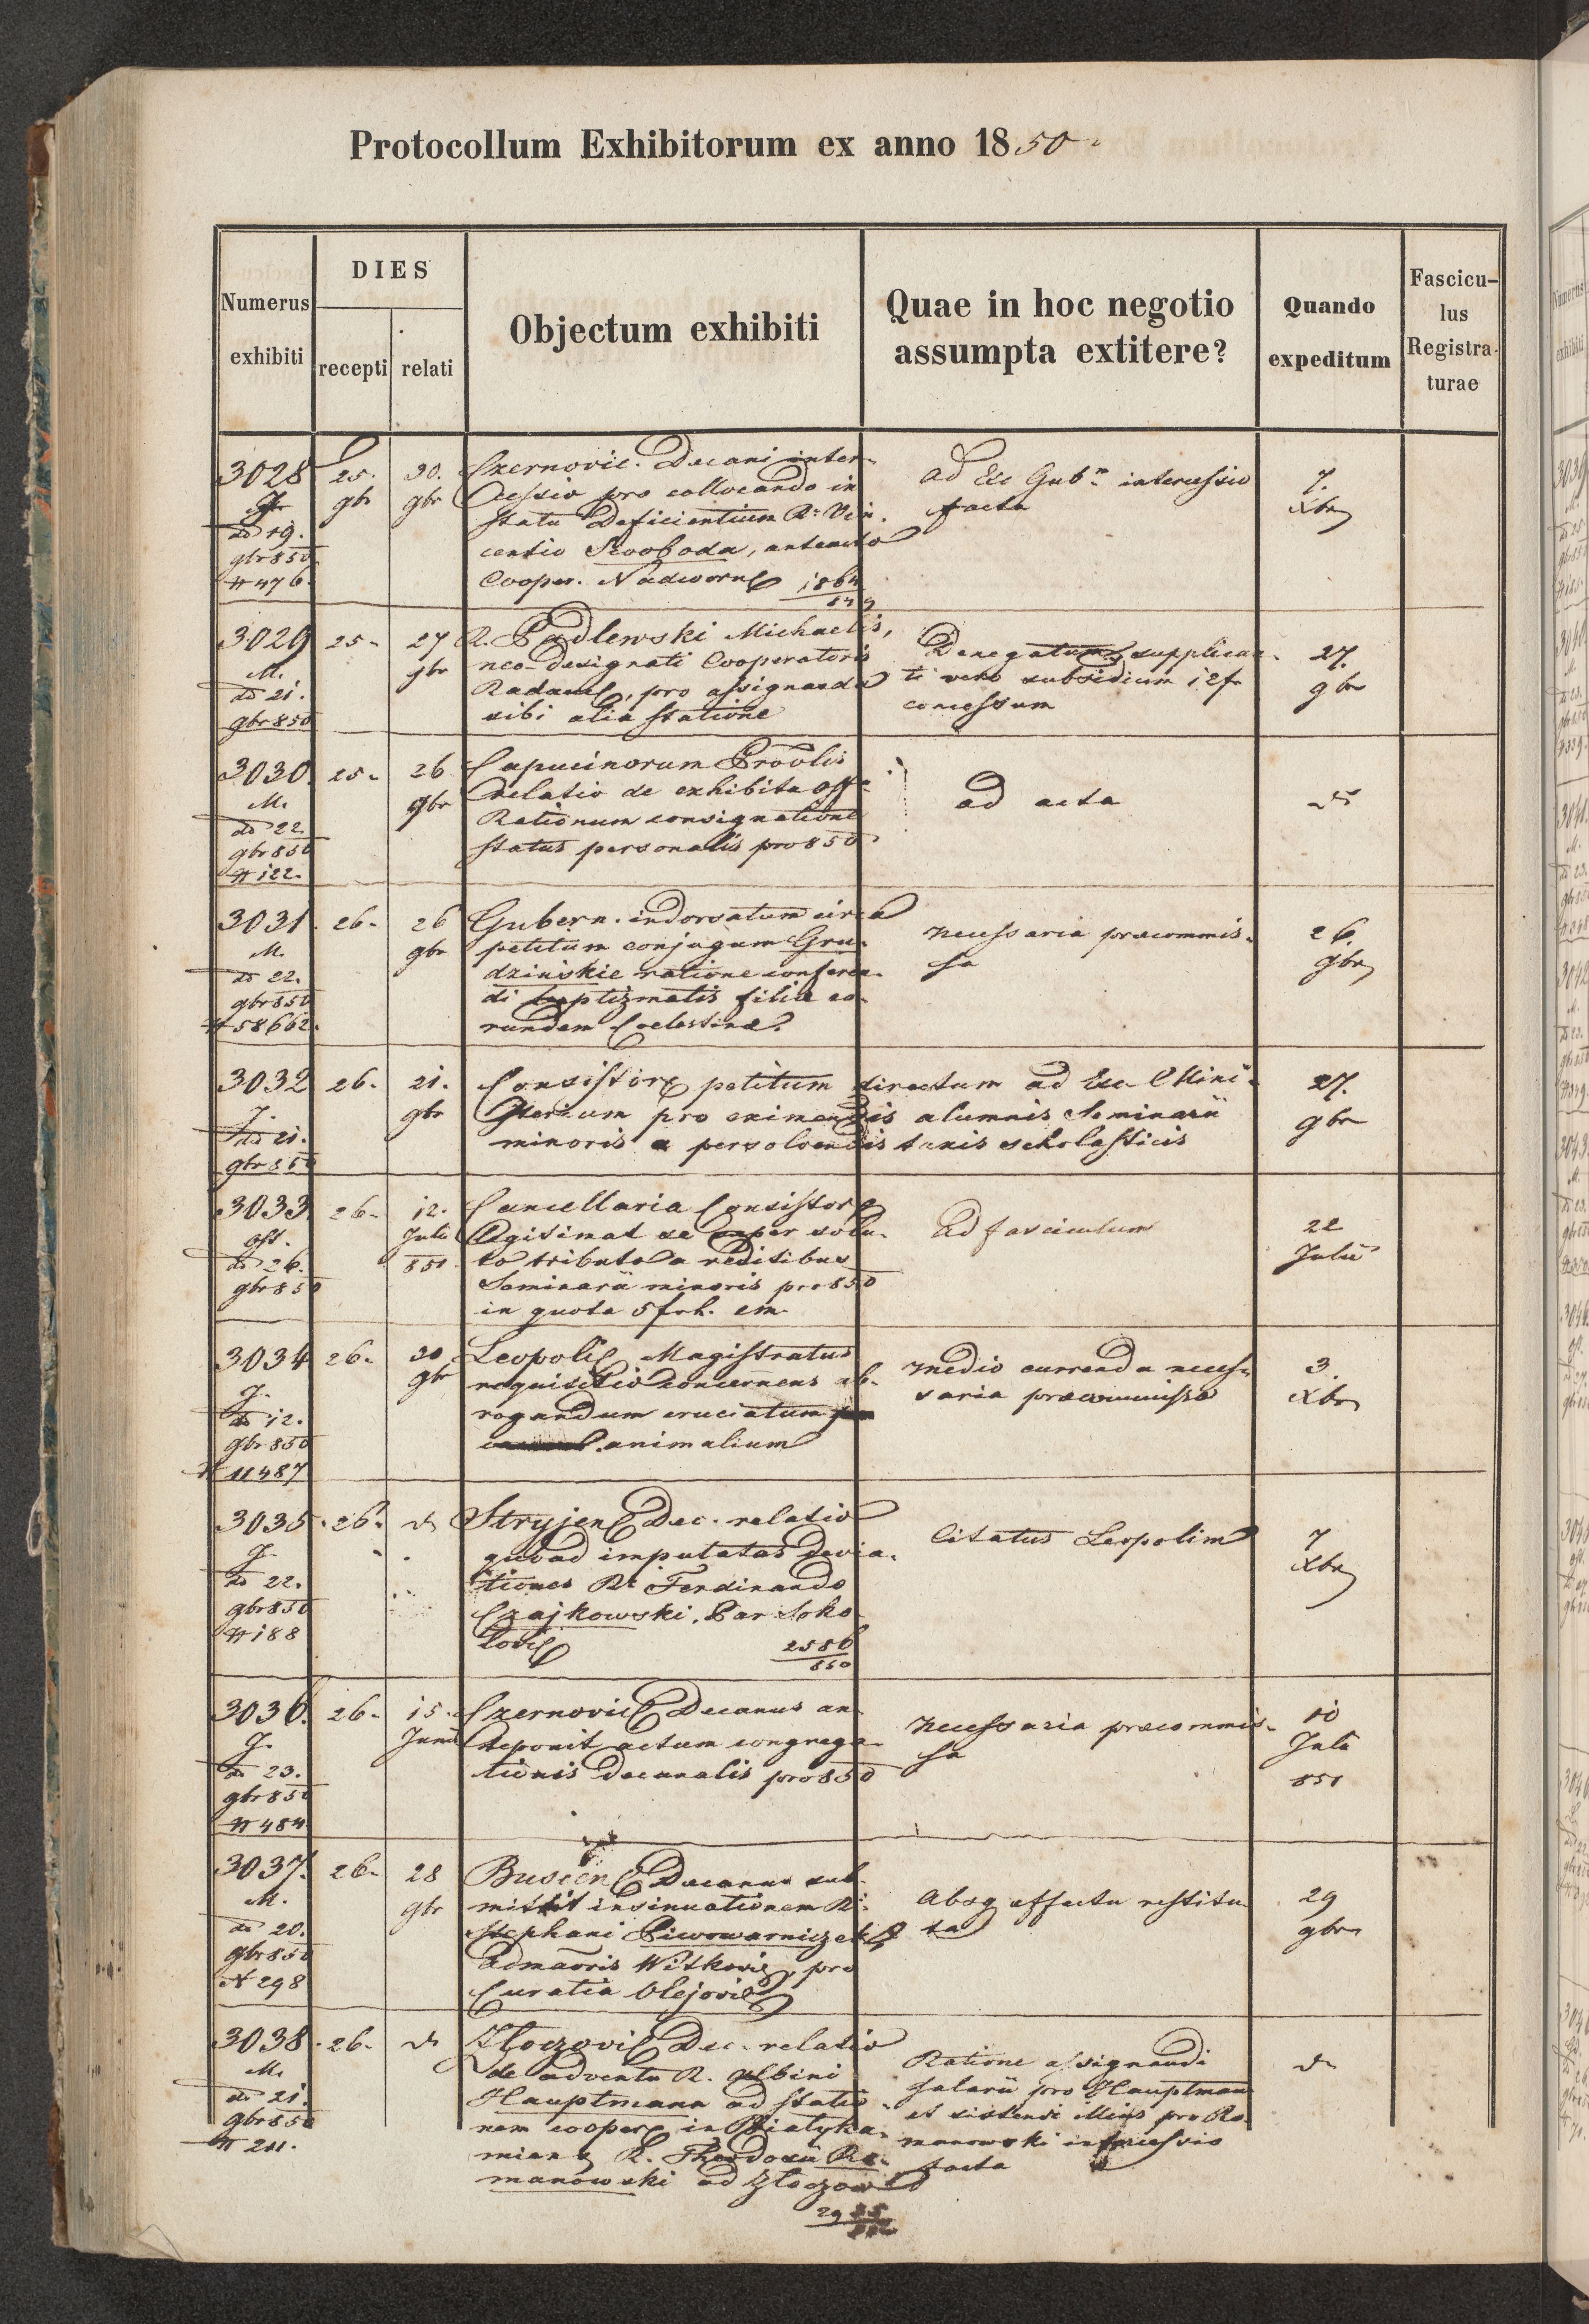 Protocollum Exhibitorum ex anno 1850
Numerus exhibiti
DIES
recepti
relati
Objectum exhibiti
Quae in hoc negotio
assumpta extitere?
Quando
expeditum
Fascicu-
lus
Registra-
turae
3028
dd 19.
gbr 850
N 476.
25.
gbr
30.
gbr
Czernovic. Decani inter-
cessio pro collocando in
statu Deficientium Rdi Vin-
centio Swoboda, anteacto
Cooper. Nadworn
1864
849
Ad Exc Gubm intercessio
facta
7.
Xbr
3029
M.
dd 21.
gbr 850
25.
27
gbr
R. Padlewski Michaelis,
neo-designati Cooperatoris
Radauc, pro assignanda
sibi alia statione
Denegatum, supplican-
ti vero subsidium 12 fr
concessum
27.
gbr
3030.
M.
dd 22.
gbr 850
N 122.
25.
26
gbr
Capucinorum Provlis
relatio de exhibita
Rationum consignatione
status personalis pro 850
ad acta
3031
M.
dd 22.
gbr 850
N 58662.
26.
26
gbr
Gubern. indorsatum circa
petitum conjugum Gru-
dzinskie ratione conferen-
di baptizmatis filiae eo-
rundem Coelestinae.
necessaria praecommis-
sa
26.
gbr
3032
J.
dd 21.
gbr 850
26.
21.
gbr
Consistor petitum directum ad Exc Mini-
sterium pro eximendis alumnis Seminarii
minoris a persolvendis taxis scholasticis
27.
gbr
3033
dd 26.
gbr 850
26.
12.
Julii
851
Cancellaria Consistor
legitimat se super solu-
to tributo a reditibus
Seminarii minoris pro 850
in quota 5 frh. em.
Ad fasciculum
22
Julii
3034
J.
dd 12.
gbr 850
N 11487
26.
30
gbr
Leopoli Magistratus
requisitio concernens ab-
rogandum cruciatum
animalium
medio currenda neces-
saria praecommissa
3.
Xbr
3035.
J.
dd 22.
gbr 850
N 188
26.
do
Stryjen Dec. relatio
quoad imputatas devia-
tiones Rdi Ferdinando
Czajkowski, Par Soko-
lovi
2586
850
Citatus Leopolim
7
Xbr
3036.
J.
dd 23.
gbr 850
N 484
26.
15.
Junii
Czernovic Decanus an-
teponit actum congrega-
tionis decanalis pro 850
necessaria praecommis-
sa
10
Julii
851
3037.
M.
dd 20.
gbr 850
N 298
26.
28
gbr
Buscen Decanus sub-
mittit insinuationem Rdi
Stephani Piwowarniczek
Admaoris Witkovi, pro
Curatia Olejovi
Absq effectu restitu-
ta
29
gbr
3038.
M.
dd 21.
gbr 850
N 211.
26.
do
Zloczovi Dec. relatio
de adventu R. Albini
Hauptmann ad statio-
nem cooper in Bialyka-
mien & R. Theodosii Ro-
manowski ad Zloczow
Ratione assignandi
salarii pro Hauptmann
et sistendi illius pro Ro-
manowski intercessio
facta
do